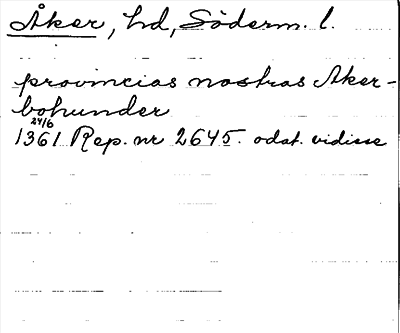 Åker, hd, Söderm. l.
provincias nostras Aker-
bohunder
24/6
1361 Rep. nr 2645. odat. vidisse